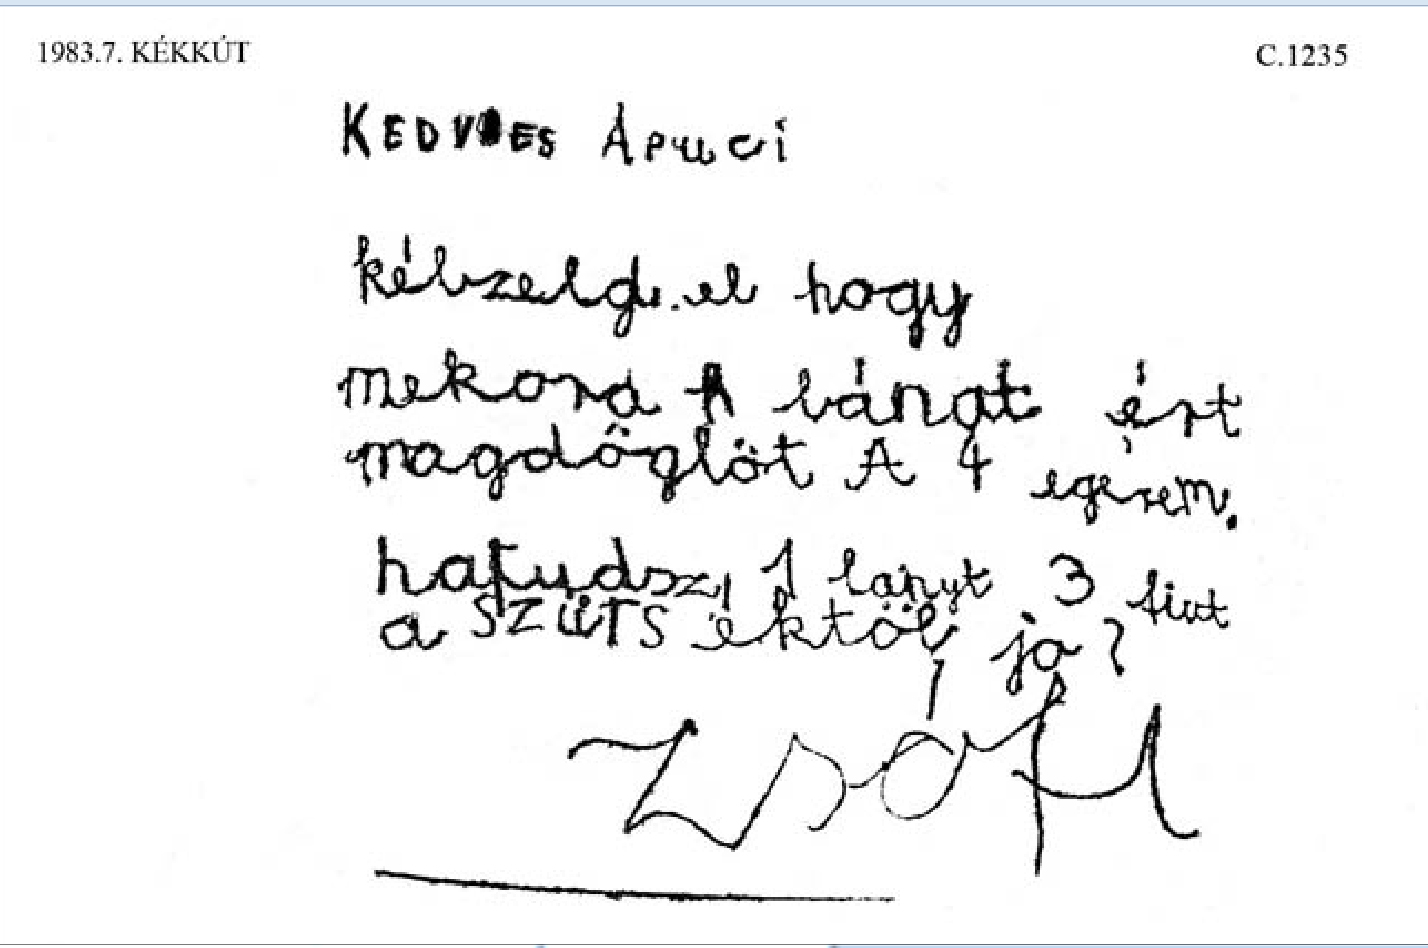 1983.7. KÉKKÚT
C.1235
KEDVES Apuci
kébzeld el hogy
mekora A bánat ért
magdöglöt A 4 egérem.
hatudsz, 1 lányt 3 fiut
a SZŰTS éktől já?
Zsófi